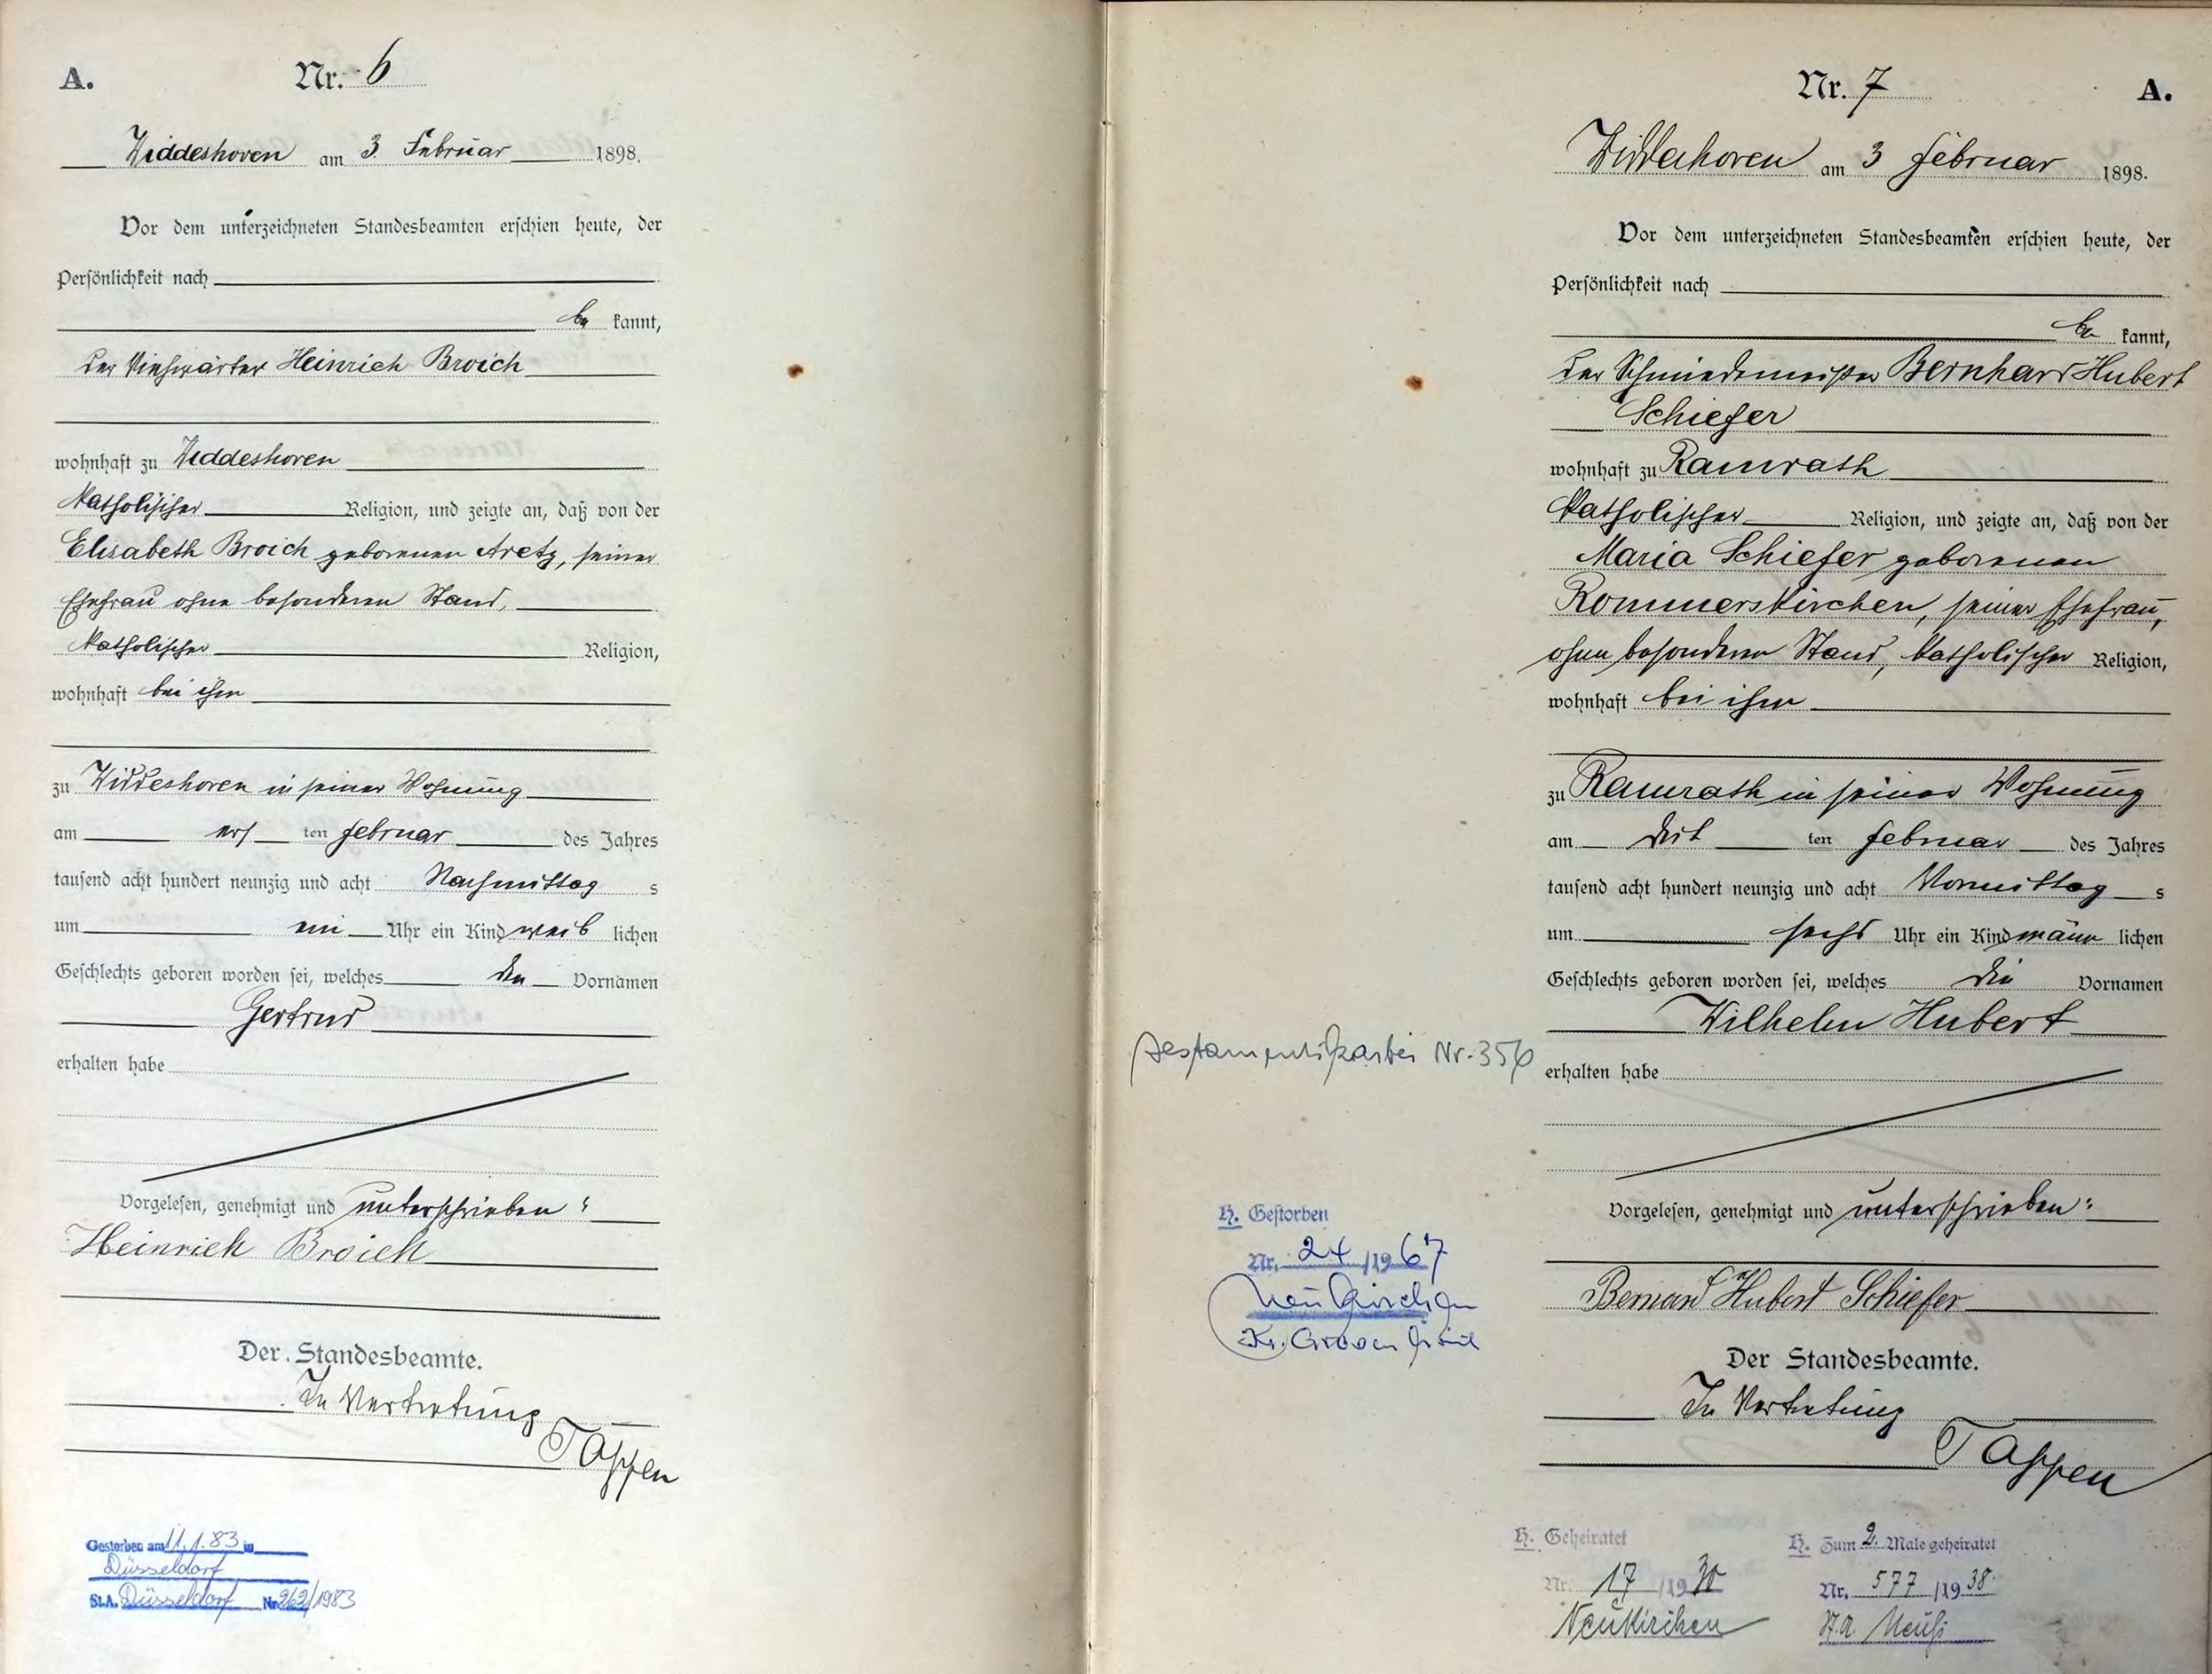 A. Nr. 6
Widdeshoven am 3. Februar 1898.
Vor dem unterzeichneten Standesbeamten erschien heute, der
Persönlichkeit nach
be kannt,
der Viehwärter Heinrich Broich
wohnhaft zu Widdeshoven
katholischer Religion, und zeigte an, daß von der
Elisabeth Broich geborenen Aretz, seiner
Ehefrau ohne besonderen Stand,
katholischer Religion,
wohnhaft bei ihm
zu Widdeshoven in seiner Wohnung
am ers ten Februar des Jahres
tausend acht hundert neunzig und acht Nachmittag s
um ein Uhr ein Kind weib lichen
Geschlechts geboren worden sei, welches den Vornamen
Gertrud
erhalten habe
Vorgelesen, genehmigt und unterschrieben:
Heinrich Broich
Der Standesbeamte.
In Vertretung
Tappen
Gestorben am 11.1.83 in
Düsseldorf
St.A. Düsseldorf Nr. 262/1983
Nr. 7 A.
Widdeshoven am 3 Februar 1898.
Vor dem unterzeichneten Standesbeamten erschien heute, der
Persönlichkeit nach
be kannt,
der Schmiedemeister Bernhard Hubert
Schiefer
wohnhaft zu Ramrath
katholischer Religion, und zeigte an, daß von der
Maria Schiefer geborenen
Rommerskirchen, seiner Ehefrau,
ohne besonderen Stand, katholischer Religion,
wohnhaft bei ihm
zu Ramrath in seiner Wohnung
am drit ten Februar des Jahres
tausend acht hundert neunzig und acht Vormittag s
um sechs Uhr ein Kind männ lichen
Geschlechts geboren worden sei, welches die Vornamen
Wilhelm Hubert
erhalten habe
Vorgelesen, genehmigt und unterschrieben:
Bernard Hubert Schiefer
Der Standesbeamte.
In Vertretung
Tappen
Testamentskartei Nr. 356
H. Gestorben
Nr. 24/1967
Neukirchen
Kr. Grevenbroich
H. Geheiratet
Nr. 17/1930
Neukirchen
H. Zum 2. Male geheiratet
Nr. 577/1938
St.A. Neuß